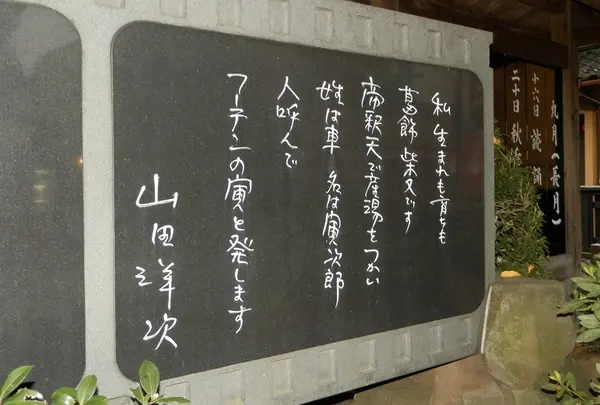 私 生まれも育ちも
葛飾 柴又です
帝釈天で産湯をつかい
姓は車 名は寅次郎
人呼んで
フーテンの寅と発します
山田洋次
九月(長月)
十六日
二十日 秋